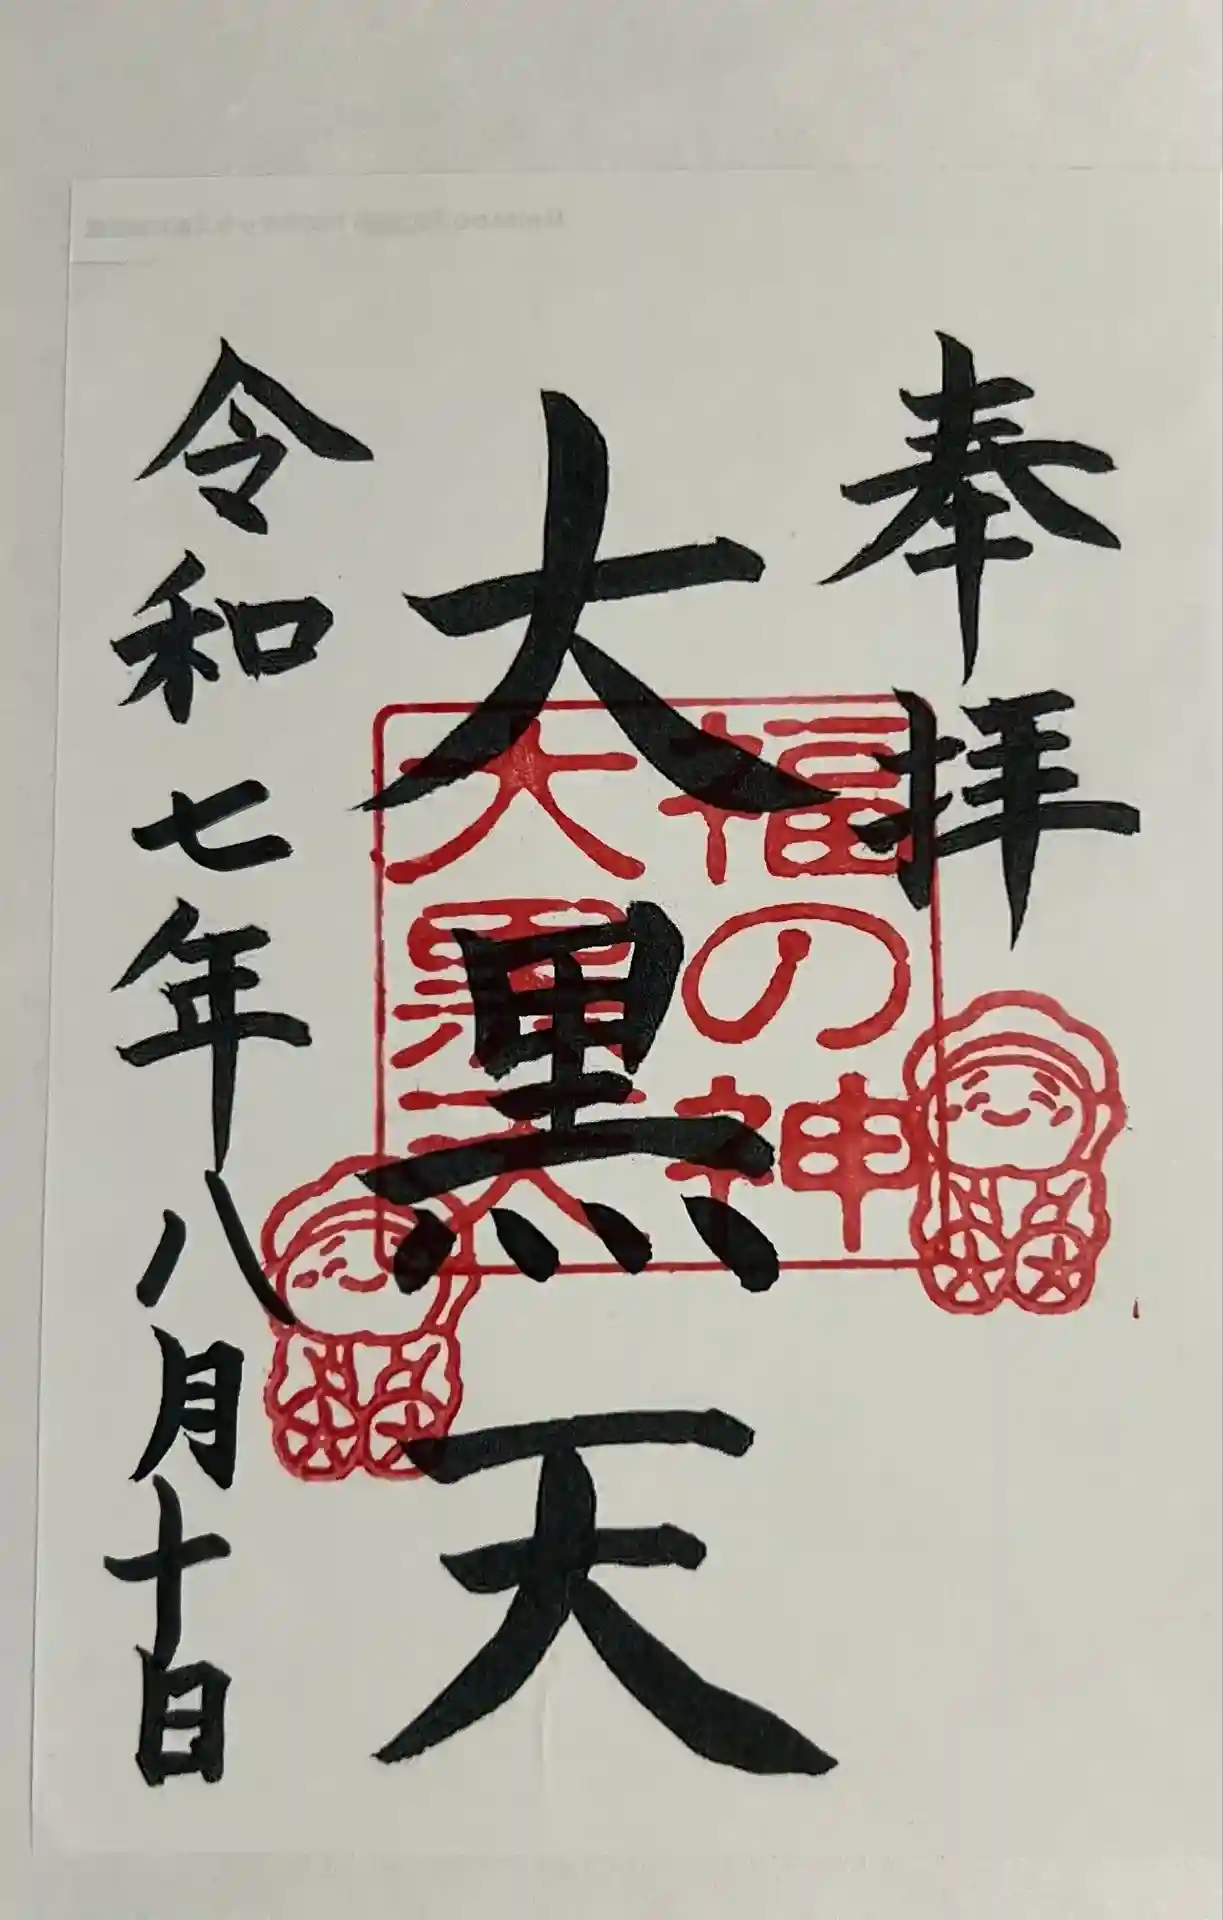 奉拝
大黒天
令和七年八月十日
福の神
大黒天